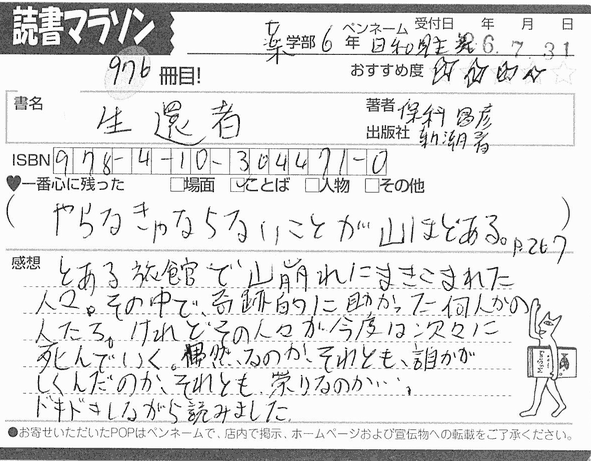 読書マラソン
薬学部 6年 ペンネーム 日和 受付日 6年 7月 31日
976冊目! おすすめ度 ☆☆☆☆☆
書名 生還者 著者 保科昌彦
出版社 新潮
ISBN 978-4-10-304471-0
♥一番心に残った □場面 ☑ことば □人物 □その他
(やらなきゃならないことが山ほどある。P.267)
感想 とある旅館で山崩れにまきこまれた
人々。その中で、奇跡的に助かった何人かの
人たち。けれどその人々が今度は次々に
死んでいく。偶然なのか、それとも、誰かが
しくんだのか、それとも、祟りなのか…。
ドキドキしながら読みました。
●お寄せいただいたPOPはペンネームで、店内で掲示、ホームページおよび宣伝物への転載をご了承ください。